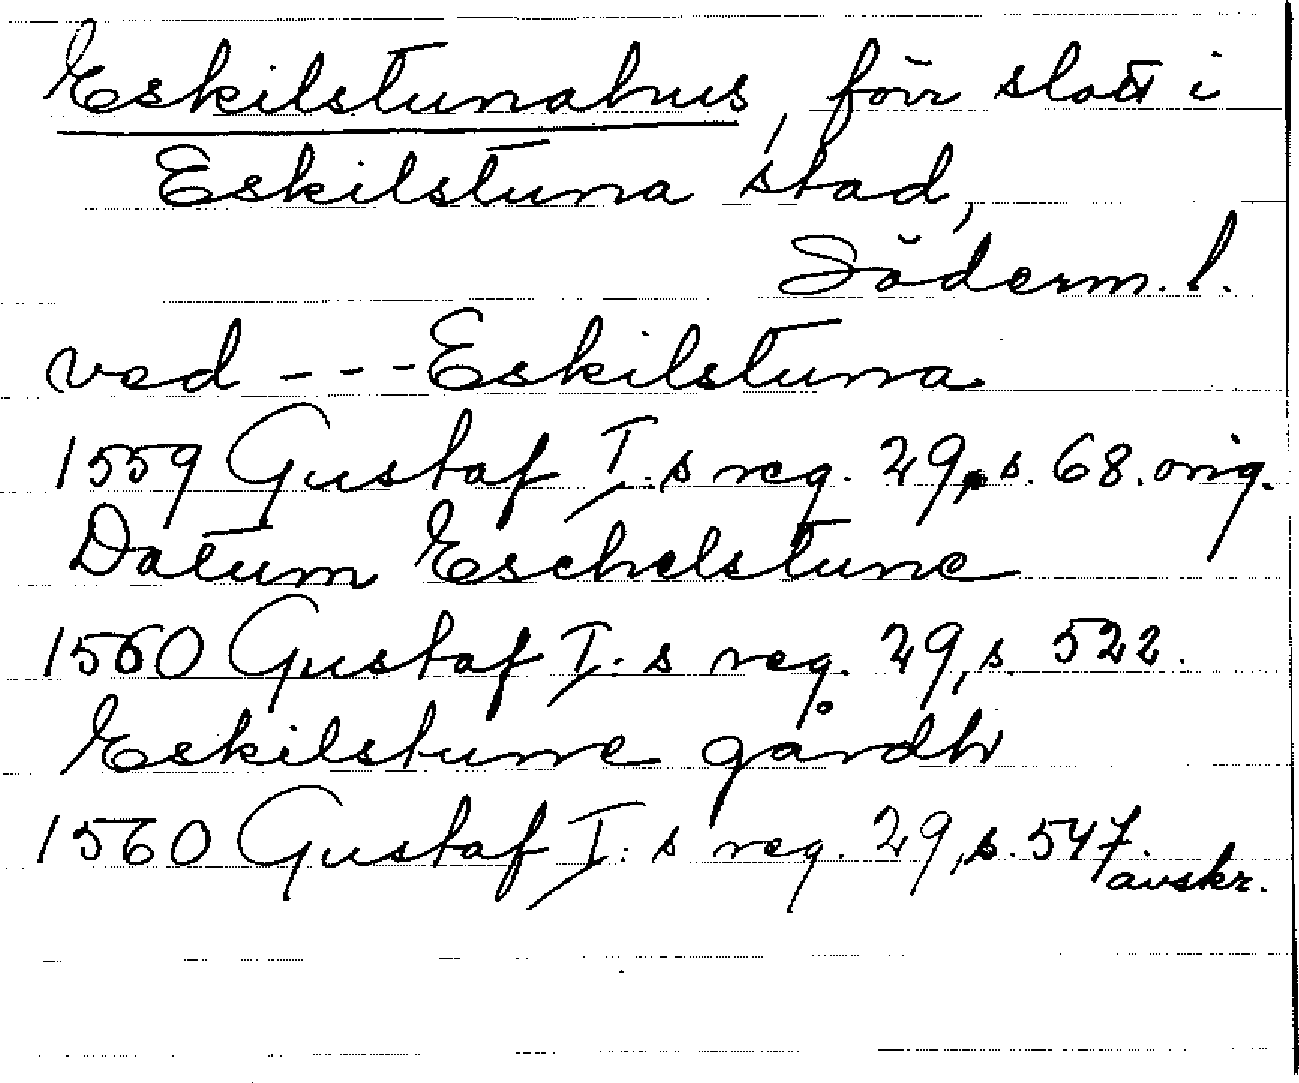 Eskilstunahus, förr slott i
Eskilstuna stad,
Söderm. l.
ved - - - Eskilstuna
1559 Gustaf I:s reg. 29, s. 68. orig.
Datum Eschelstune
1560 Gustaf I:s reg. 29, s. 522.
Eskilstune gårdh
1560 Gustaf I:s reg. 29, s. 547.
avskr.